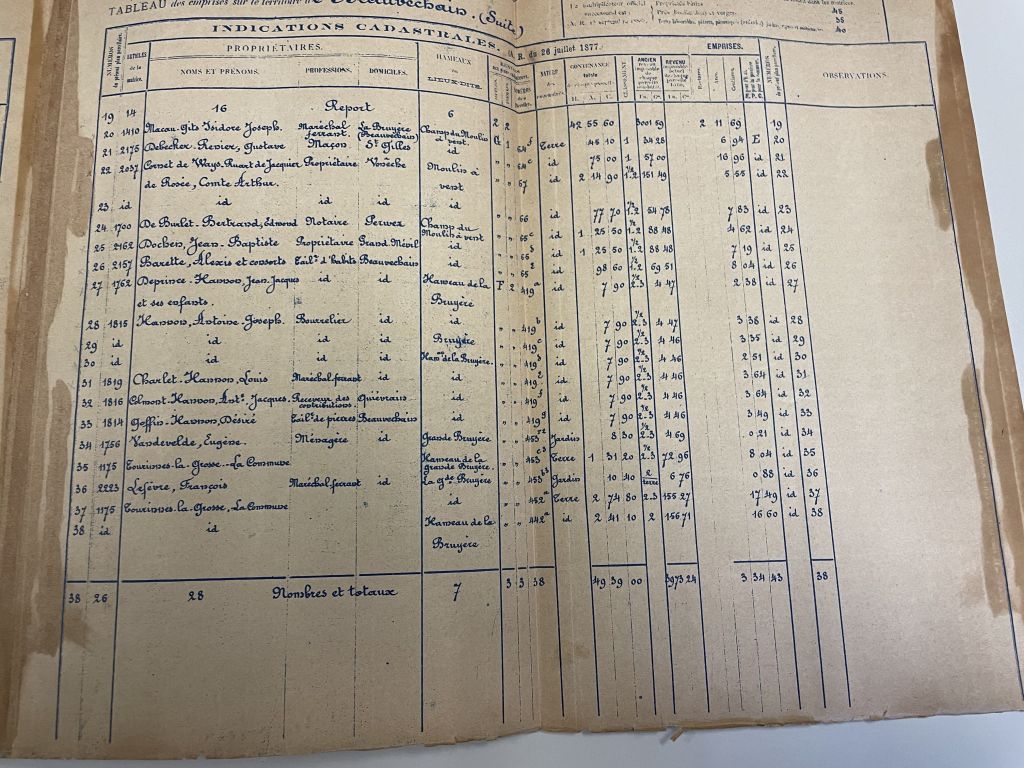 TABLEAU des emprises sur le territoire de Beauvechain. (Suite)
INDICATIONS CADASTRALES. (A. R. du 26 juillet 1877.
45
35
40
PROPRIÉTAIRES. HAMEAUX EMPRISES.
NUMÉROS ARTICLES de la matrice. NOMS ET PRÉNOMS. PROFESSIONS. DOMICILES. ou LIEUX-DITS. NATURE CONTENANCE totale CLASSEMENT ANCIEN REVENU NUMÉROS OBSERVATIONS.
H. A. C. Fr. Cs. Fr. Cs.
19 14 16 Report 6 2 2 42 55 60 3001 59 2 11 69 19
20 1410 Macau-Gits Isidore Joseph. Maréchal ferrant. La Bruyère (Beauvechain) Champ du Moulin à vent. G 1 64f Terre 45 10 1 34 28 6 94 E 20
21 2176 Debecker, Rénier, Gustave Maçon St Gilles id " " 64c id 75 00 1 57 00 16 96 id 21
22 2037 Cornet de Ways, Ruart de Jacquier Propriétaire Vonêche Moulin à " " 67 id 2 14 90 1/2 1.2 151 49 5 55 id 22
de Rosée, Comte Arthur. vent
23 id id id id id " " 66 id 77 70 1/2 1.2 54 78 7 83 id 23
24 1700 De Burlet, Bertrand, Edmond Notaire Perwez Champ du Moulin à vent " " 65c id 1 25 50 1/2 1.2 88 48 4 62 id 24
25 2162 Dochen, Jean-Baptiste Propriétaire Grand Mévil id " " id 1 25 50 1/2 1.2 88 48 7 19 id 25
26 2157 Barette, Alexis et consorts Tail. d'habits Beauvechain id " " 65 id 98 60 1/2 1.2 69 51 8 04 id 26
27 1762 Deprince-Hannon, Jean, Jacques id id Hameau de la F 2 419a id 7 90 1/2 2.3 4 47 2 38 id 27
et ses enfants. Bruyère
28 1815 Hannon, Antoine-Joseph. Bourrelier id " " 419b id 7 90 1/2 2.3 4 47 3 38 id 28
29 id id id id Bruyère " " 419c id 7 90 1/2 2.3 4 46 3 35 id 29
30 id id id id Hamau de la Bruyère. " " 419 id 7 90 1/2 2.3 4 46 2 51 id 30
31 1819 Charlet-Hannon, Louis Maréchal-ferrant id id " " 419 id 7 90 1/2 2.3 4 46 3 64 id 31
32 1816 Elmont-Hannon, Ant. Jacques. Receveur des contributions. Quiévrain id " " 419f id 7 90 1/2 2.3 4 46 3 64 id 32
33 1814 Goffin-Hannon, Désiré Tail. de pierres Beauvechain id " " 419g id 7 90 1/2 2.3 4 46 3 49 id 33
34 1756 Vandevelde, Eugène. Ménagère id Grande Bruyère. " " 453 Jardin 8 30 1/2 2.3 4 69 0 21 id 34
35 1175 Tourinnes-la-Grosse.-La Commune Hameau de la grande Bruyère. " " 453 Terre 1 31 20 1/2 2.3 72 96 8 04 id 35
36 2223 Lefèvre, François Maréchal-ferrant id La gde Bruyère " " 453 Jardin 10 40 2 terre 6 76 0 88 id 36
37 1175 Tourinnes-la-Grosse, La Commune id " " 452a Terre 2 74 80 2.3 155 27 17 49 id 37
38 id id Hameau de la " " 442a id 2 41 10 2 156 71 16 60 id 38
Bruyère
38 26 28 Nombres et totaux 7 3 3 38 49 39 00 3973 24 3 34 43 38